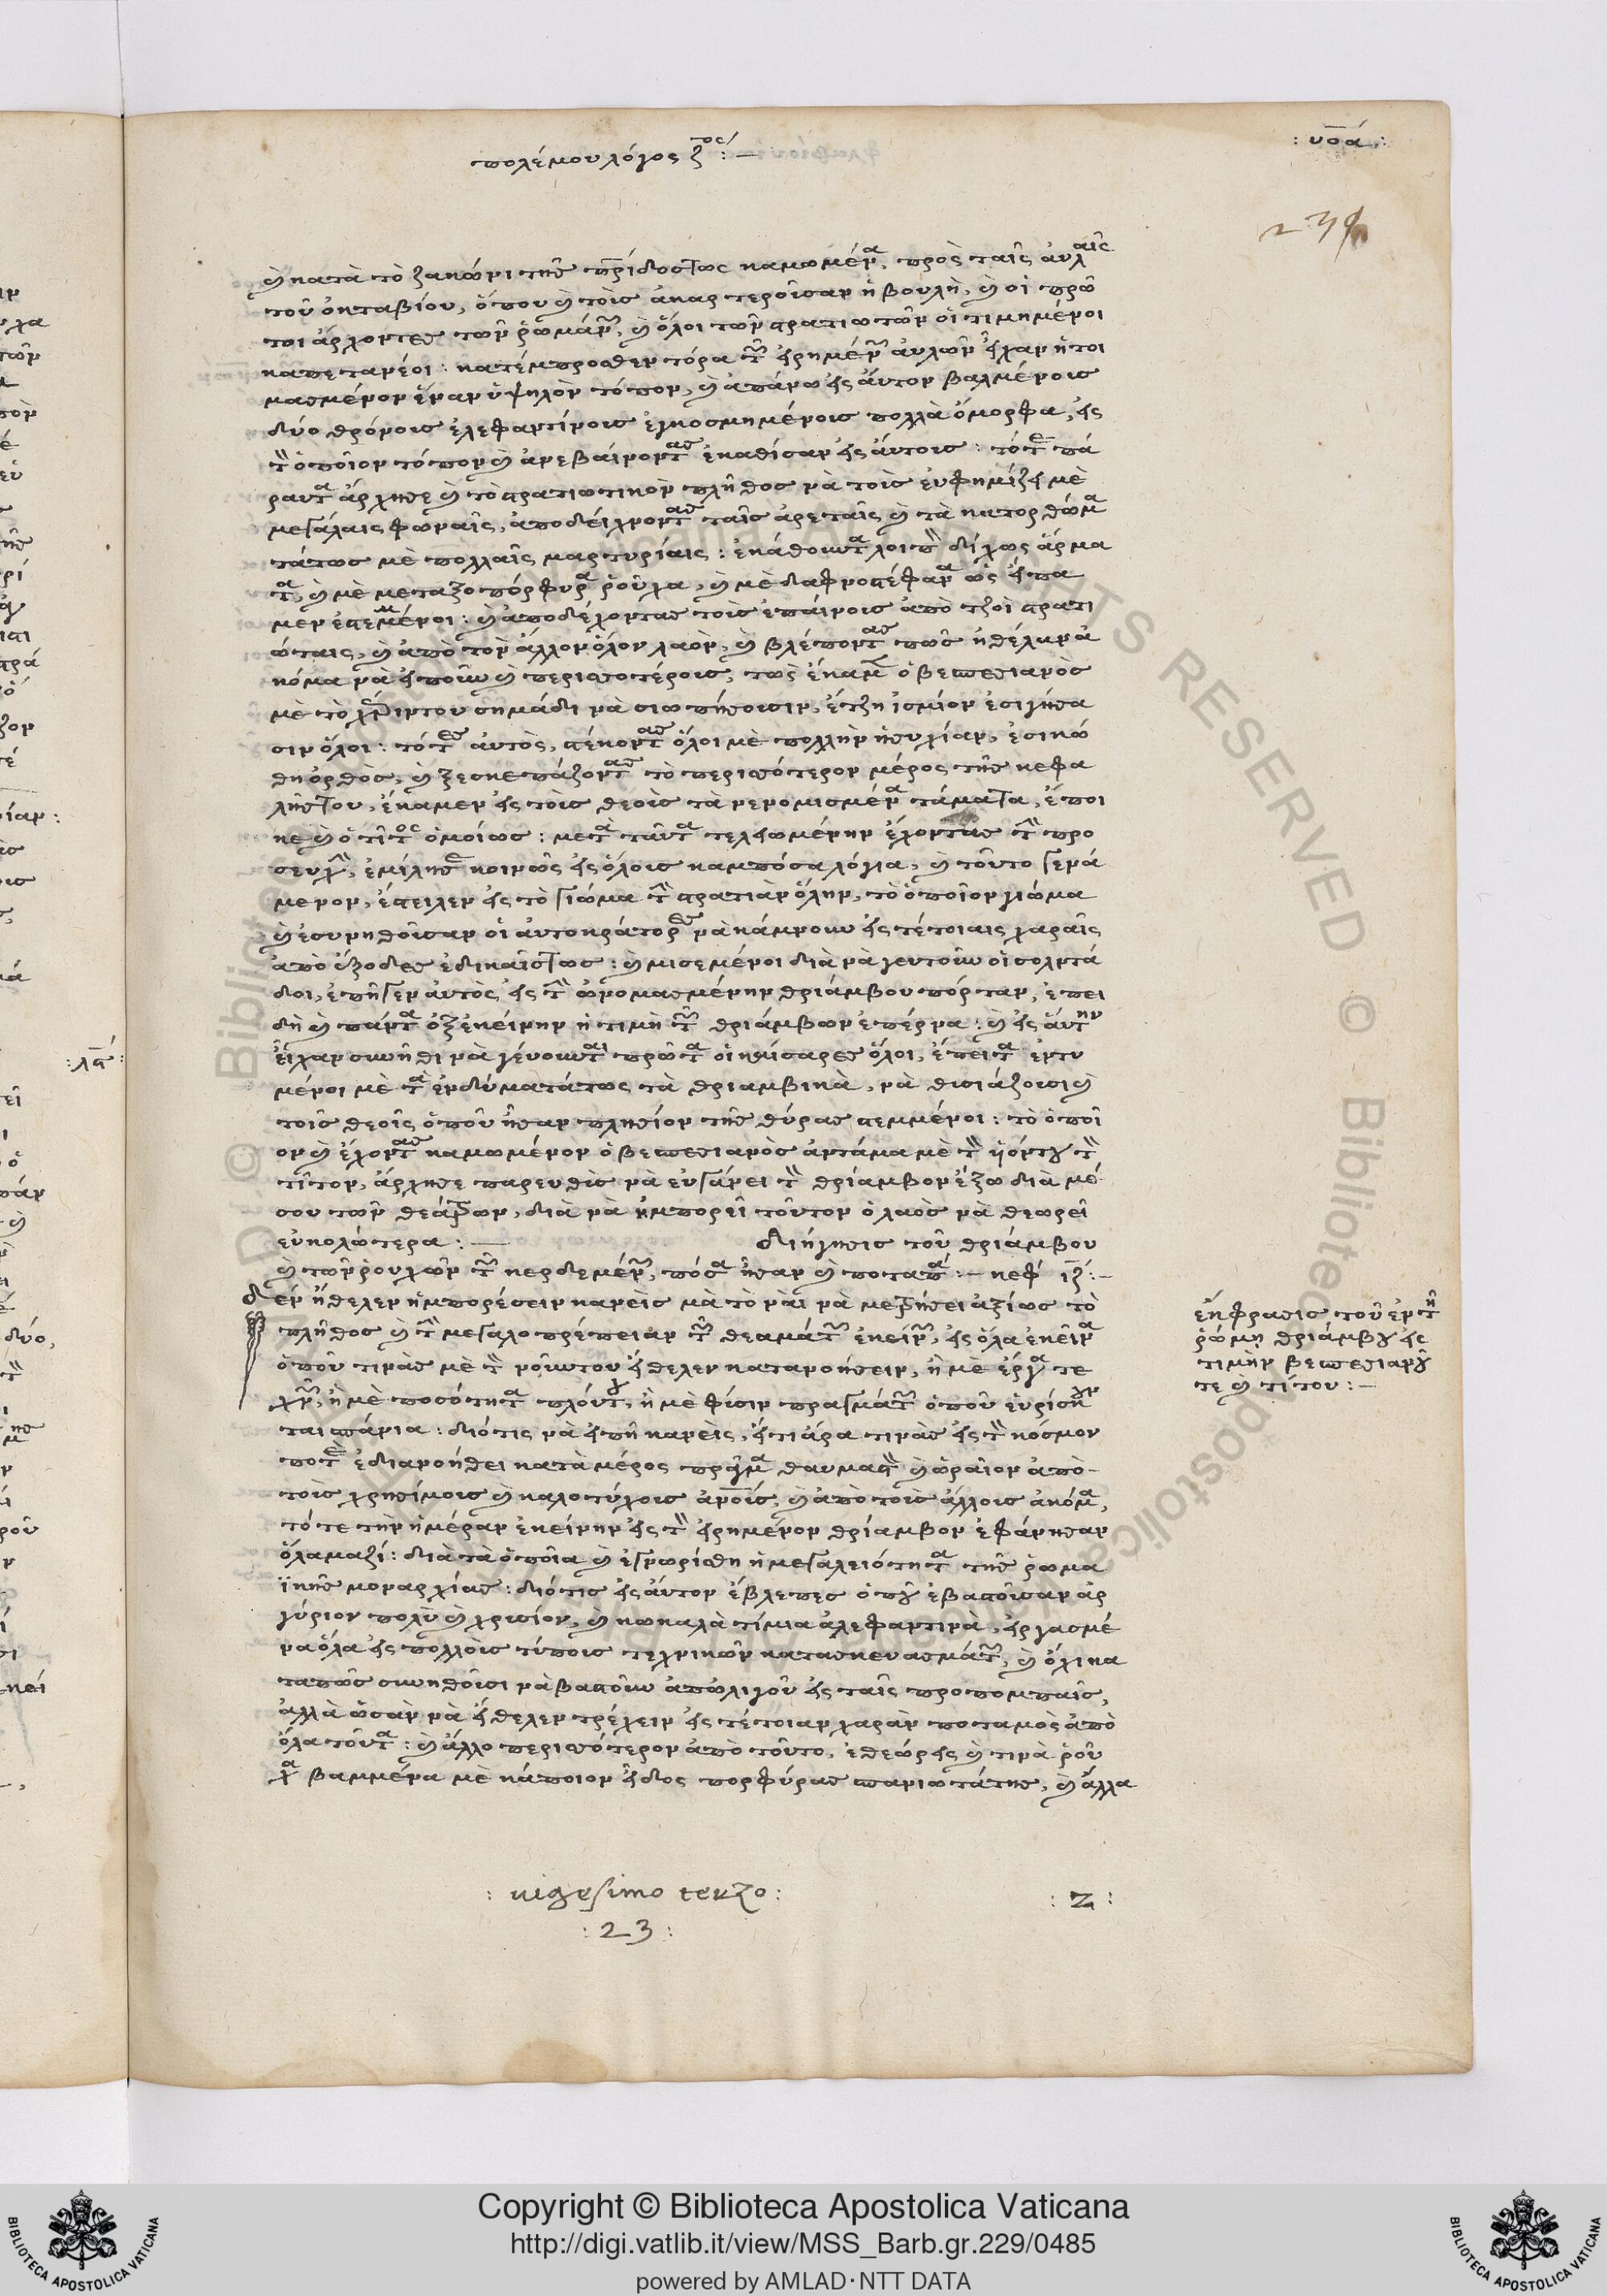 πολέμου λόγος ζ^ος :—
: υοα :
καὶ κατὰ τὸ ζακόνι τῆς πατρίδος τως καμωμένα, πρὸς ταῖς αὐλαῖς
τοῦ ὀκταβίου, ὅπου καὶ τοὶς ἀκαρτεροῦσαν ἡ βουλὴ, καὶ οἱ πρῶ
τοι ἄρχοντες τῶν ῥωμάνων, καὶ ὅλοι τῶν στρατιωτῶν οἱ τιμημένοι
καπετανέοι : κατέμπροσθεν τόρα τῶν εἰρημένων αὐλῶν εἶχαν ἥτοι
μασμένον ἕναν ὑψηλὸν τόπον, καὶ ἀπάνω εἰς αὐτον βαλμένοις
δύο θρόνοις ἐλεφαντίνοις ἐγκοσμημένοις πολλὰ ὄμορφα, εἰς
τὸν ὁποῖον τόπον καὶ ἀνεβαίνοντας ἐκαθίσαν εἰς αὐτοις : τότε πά
ραυτα ἄρχησε καὶ τὸ στρατιωτικὸν πλῆθος νὰ τοὶς εὐφημίζει μὲ
μεγάλαις φωναῖς, ἀποδείχνοντας ταῖς ἀρεταῖς καὶ τὰ κατορθώμα
τάτως μὲ πολλαῖς μαρτυρίαις : ἐκάθουντα λοιπὸν δίχως ἅρμα
τα, καὶ μὲ μεταξοπόρφυρα ῥοῦχα, καὶ μὲ δαφνοστέφανα ὡς εἴπα
μεν ἐστεμμένοι : καὶ ἀποδέχοντας τοὶς ἐπαίνοις ἀπὸ τζοὶ στρατι
ώταις, καὶ ἀπὸ τὸν ἄλλον ὅλον λαὸν, καὶ βλέποντας πῶς ἠθέλαν ἀ
κόμα νὰ εἰποῦν καὶ περισσοτέροις, τῶς ἔκαμεν ὁ βεσπεσιανὸς
μὲ τὸ χέριντου σημάδι νὰ σιωπήσουσιν, ἔτζη ἰσμίον ἐσιγήσα
σιν ὅλοι : τότες αὐτὸς, στέκοντας ὅλοι μὲ πολλὴν ἡσυχίαν, ἐσικώ
θη ὀρθὸς, καὶ ξεσκεπάζοντας τὸ περισσότερον μέρος τῆς κεφα
λῆς του, ἔκαμεν εἰς τοὶς θεοὶς τὰ νενομισμένα τάματα, ἔποι
κε καὶ ὁ τίτος ὁμοίως : μετὰ ταῦτα τελειωμένην ἔχοντας τὴν προ
σευχὴν, ἐμίλησε κοινῶς εἰς ὅλοις καμπόσα λόγια, καὶ τοῦτο γενά
μενον, ἔστειλεν εἰς τὸ γιῶμα τὴν στρατιὰν ὅλην, τὸ ὁποῖον γιῶμα
καὶ ἐσυνηθοῦσαν οἱ αὐτοκράτορες νὰ κάμνουν εἰς τέτοιαις χαραῖς
ἀπὸ ἐξοδες ἐδικαῖς τως : καὶ μισεμένοι διὰ νὰ γευτοῦν οἱ σολντά
δοι, ἐπῆγεν αὐτὸς εἰς τὴν ὠνομασμένην θριάμβου πόρταν, ἐπει
δὴ καὶ πάντα ὀξ ἐκείνην ἡ τιμὴ τῶν θριάμβων ἐπέρνα : καὶ εἰς αὐτὴν
εἴχαν συνήθι νὰ γένουνται πρῶτα οἱ καίσαρες ὅλοι, ἔπειτα ἐντυ
μένοι μὲ τὰ ἐνδύματάτως τὰ θριαμβικὰ, νὰ θυσιάζουσι καὶ
τοῖς θεοῖς ὁποῦ ἦσαν πλησίον τῆς θύρας στεμμένοι : τὸ ὁποῖ
ον καὶ ἔχοντας καμωμένον ὁ βεσπεσιανὸς ἀντάμα μὲ τὸν ὑιόντου τὸν
τῖτον, ἄρχησε παρευθὶς νὰ εὐγάνει τὸν θρίαμβον ἔξω διὰ μέ
σου τῶν θεάτρων, διὰ νὰ ἠμπορεῖ τοῦτον ὁ λαὸς νὰ θεωρεῖ
εὐκολώτερα : — διήγησις τοῦ θριάμβου
καὶ τῶν ῥουχῶν τῶν κερδεμένων, πόσα ἦσαν καὶ ποταπά :— κεφ ιζ :—
δεν ἤθελεν ἠμπορέσειν κανεὶς μὰ τὸ ναὶ νὰ μετρήσει ἀξίως τὸ
πλῆθος καὶ τὴν μεγαλοπρέπειαν τῶν θεαμάτων ἐκείνων, εἰς ὅλα ἐκεῖνα
ὁποῦ τινὰς μὲ τὸν νοῦντου ἤθελεν κατανοήσειν, ἢ μὲ ἔργα τε
χνῶν, ἢ μὲ ποσότητα πλούτου, ἢ μὲ φύσιν πραγμάτων ὁποῦ εὑρίσκον
ται σπάνια : διότις νὰ εἰπῆ κανεὶς, εἴτι ἄρα τινὰς εἰς τὸν κόσμον
ποτὲ ἐδιανοήθει κατὰ μέρος πρᾶγμα θαυμαστὸν καὶ ὡραῖον ἀπὸ-
τοὶς χρησίμοις καὶ καλοτύχοις ἀνοὶς, καὶ ἀπὸ τοὶς ἄλλοις ἀκόμα,
τότε τὴν ἡμέραν ἐκείνην εἰς τὸν εἰρημένον θρίαμβον ἐφάνησαν
ὅλαμαζί : διὰ τὰ ὁποῖα καὶ ἐγνωρίσθη ἡ μεγαλειότητα τῆς ῥωμα
ϊκῆς μοναρχίας : διότις εἰς αὐτον ἔβλεπες ὁποῦ ἐβαστοῦσαν ἀρ
γύριον πολὺ καὶ χρυσίον, καὶ κωκαλὰ τίμια ἀλεφαντινὰ, εἰργασμέ
να ὅλα εἰς πολλοὶς τύποις τεχνικῶν κατασκευασμάτων, καὶ ὄχι κα
ταπῶς συνηθοῦσι νὰ βαστοῦν ἀπὠλιγοῦ εἰς ταῖς προπομπαῖς,
ἀλλὰ ὡσὰν νὰ ἤθελεν τρέχειν εἰς τέτοιαν χαρὰν ποταμὸς ἀπὸ
ὅλα τοῦτα : καὶ ἄλλο περισσότερον ἀπὸ τοῦτο, ἐθεώρεις καὶ τινὰ ῥοῦ
χα βαμμένα μὲ κάποιον εἶδος πορφύρας σπανιωτάτης, καὶ ἄλλα
ἔκφρασις τοῦ ἐν τῆ
ῥώμη θριάμβου εἰς
τιμὴν βεσπεσιανοῦ
τε καὶ τίτου :—
: vigesimo terzo :
: 23 :
: z :
Copyright © Biblioteca Apostolica Vaticana
http://digi.vatlib.it/view/MSS_Barb.gr.229/0485
powered by AMLAD·NTT DATA